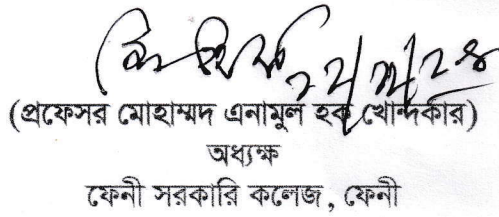 (প্রফেসর মোহাম্মদ এনামুল হক খোন্দকার)
অধ্যক্ষ
ফেনী সরকারি কলেজ, ফেনী